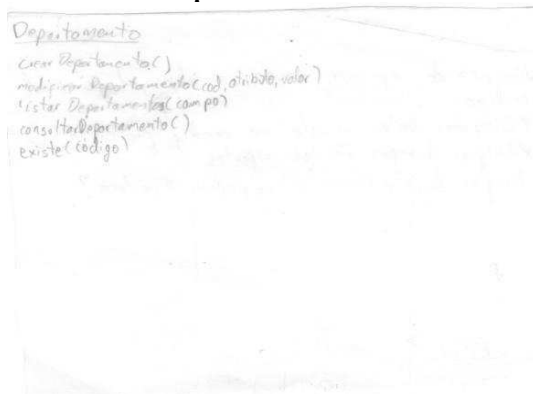 Departamento
crear Departamento()
modificar Departamento(cod, atributo, valor)
listar Departamentos(campo)
consultarDepartamento()
existe(código)